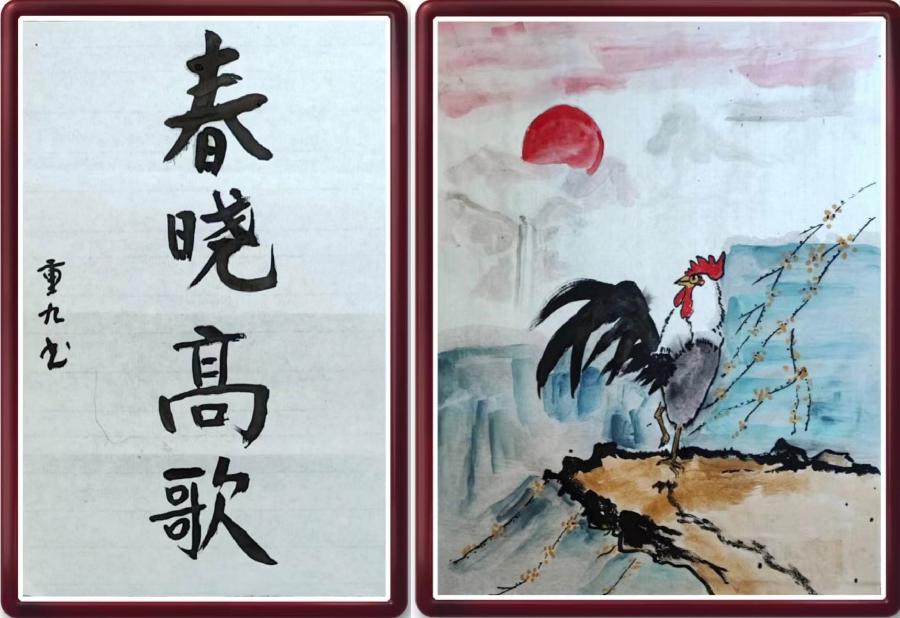 春晓髙歌
重九书